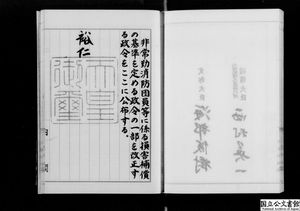 非常勤消防団員等に係る損害補償
の基準を定める政令の一部を改正す
る政令をここに公布する。
裕仁
天皇
御璽
国立公文書館
National Archives of Japan